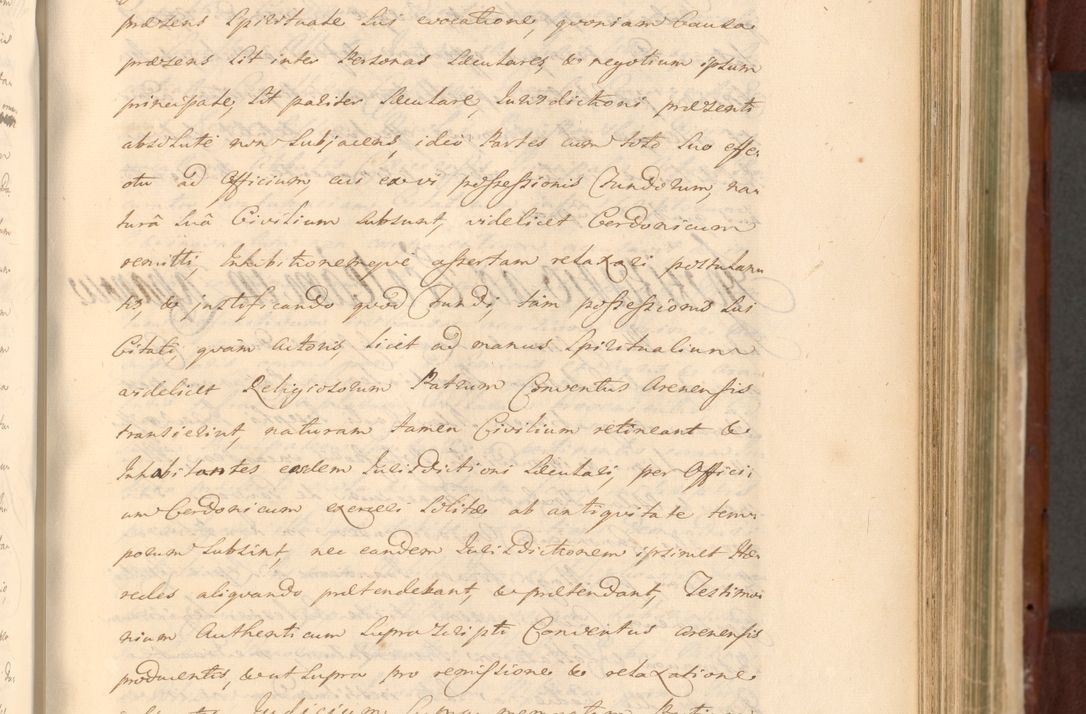 præzens Spirituale Sui evocatione, qvoniam Causa
præzens Sit inter Personas Sæculares, & negotium ipsum
principale, Sit pariter Sæculare, Jurisdictioni præzenti
absolute non Subjacens, ideo Partes cum toto Suo effe-
ctu ad Officium cui ex vi possessionis Fundorum, na-
turâ Suâ Civilium Subsunt, videlicet Cerdonicum
remitti, Inhibitionemqve assertam relaxari postulan
tis, & justificando qvod Fundi, tàm possessionis Sui
Citati, qvàm Actoris, licet ad manus Spiritualium
videlicet Religiosorum Patrum Conventus Arenensis
transierint, naturam tamen Civilium retineant &
Inhabitantes eadem Jurisdictioni Sæculari, per Offici
um Cerdonicum exerceri Solitæ ab antiqvitate tem-
porum Subsint, nec eandem Jurisdictionem ipsimet Hæ-
redes aliqvando prætendebant, & prætendant, Testimo-
nium Authenticum Suprascripti Conventus Arenensis
producentis, & ut Supra pro remissione & relaxatione
Judicium